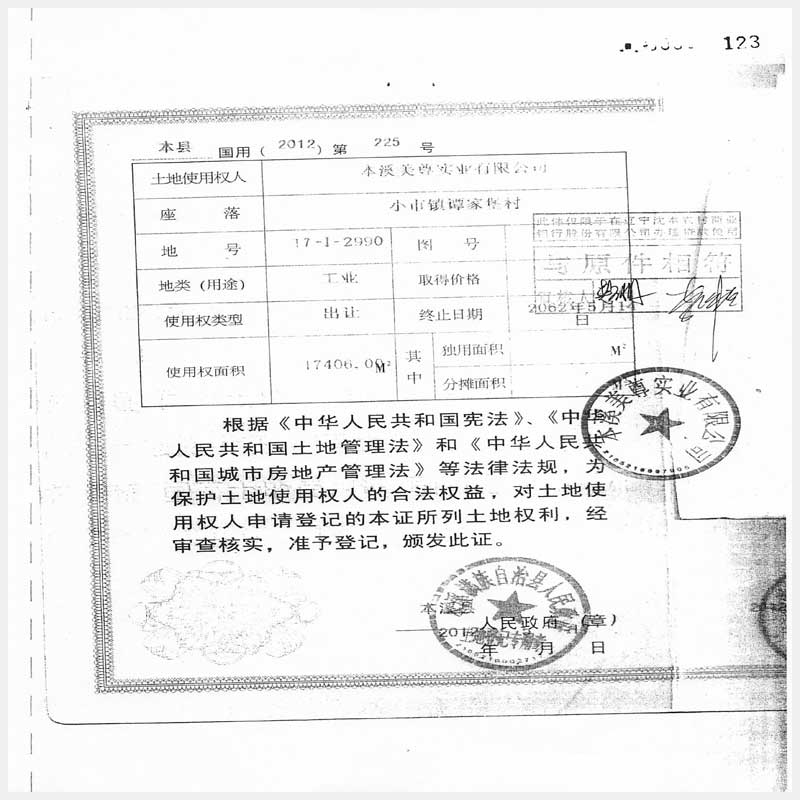 123
本县 国用(2012)第 225 号
土地使用权人 本溪美尊实业有限公司
座 落 小市镇谭家堡村
地 号 17-1-2990 图 号
地类(用途) 工业 取得价格
使用权类型 出让 终止日期 2062年5月14日
使用权面积 17406.00M² 其中 独用面积 M²
分摊面积
与原件相符
本溪美尊实业有限公司
根据《中华人民共和国宪法》、《中华
人民共和国土地管理法》和《中华人民共
和国城市房地产管理法》等法律法规,为
保护土地使用权人的合法权益,对土地使
用权人申请登记的本证所列土地权利,经
审查核实,准予登记,颁发此证。
本溪县 人民政府(章)
年 月 日